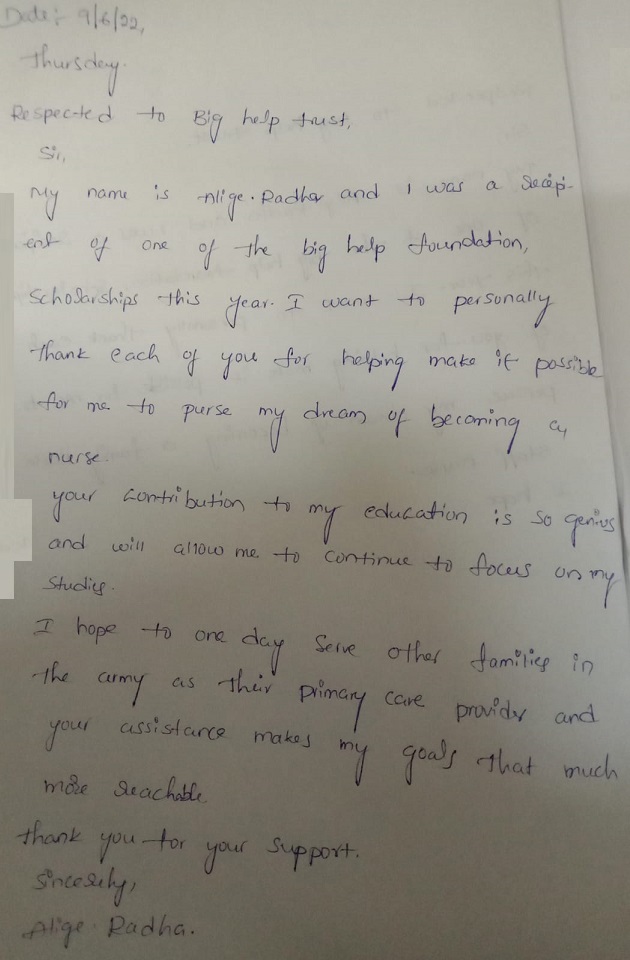 Date:- 9/6/22,
Thursday.
Respected to Big help trust,
Sir,
My name is Alige. Radha and I was a recipi-
ent of one of the big help foundation,
Scholarships this year. I want to personally
thank each of you for helping make it possible
for me to purse my dream of becoming a
nurse.
your contribution to my education is so genius
and will allow me to continue to focus on my
Studies.
I hope to one day serve other families in
the army as their primary care provider and
your assistance makes my goals that much
more reachable
thank you for your support.
Sincerely,
Alige. Radha.